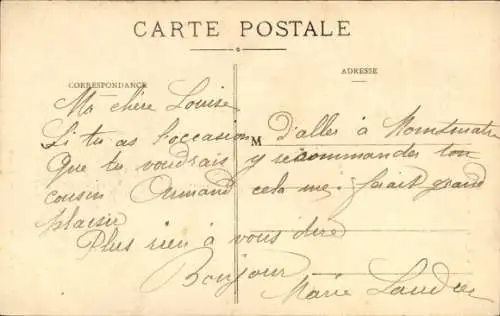 CARTE POSTALE
CORRESPONDANCE
ADRESSE
Ma chère Louise
Si tu as l'occasion M d'aller à Montmatre
Que tu voudrais y recommander ton
cousin Armand cela me ferait grand
plaisir
Plus rien à vous dire
Bonjour
Marie